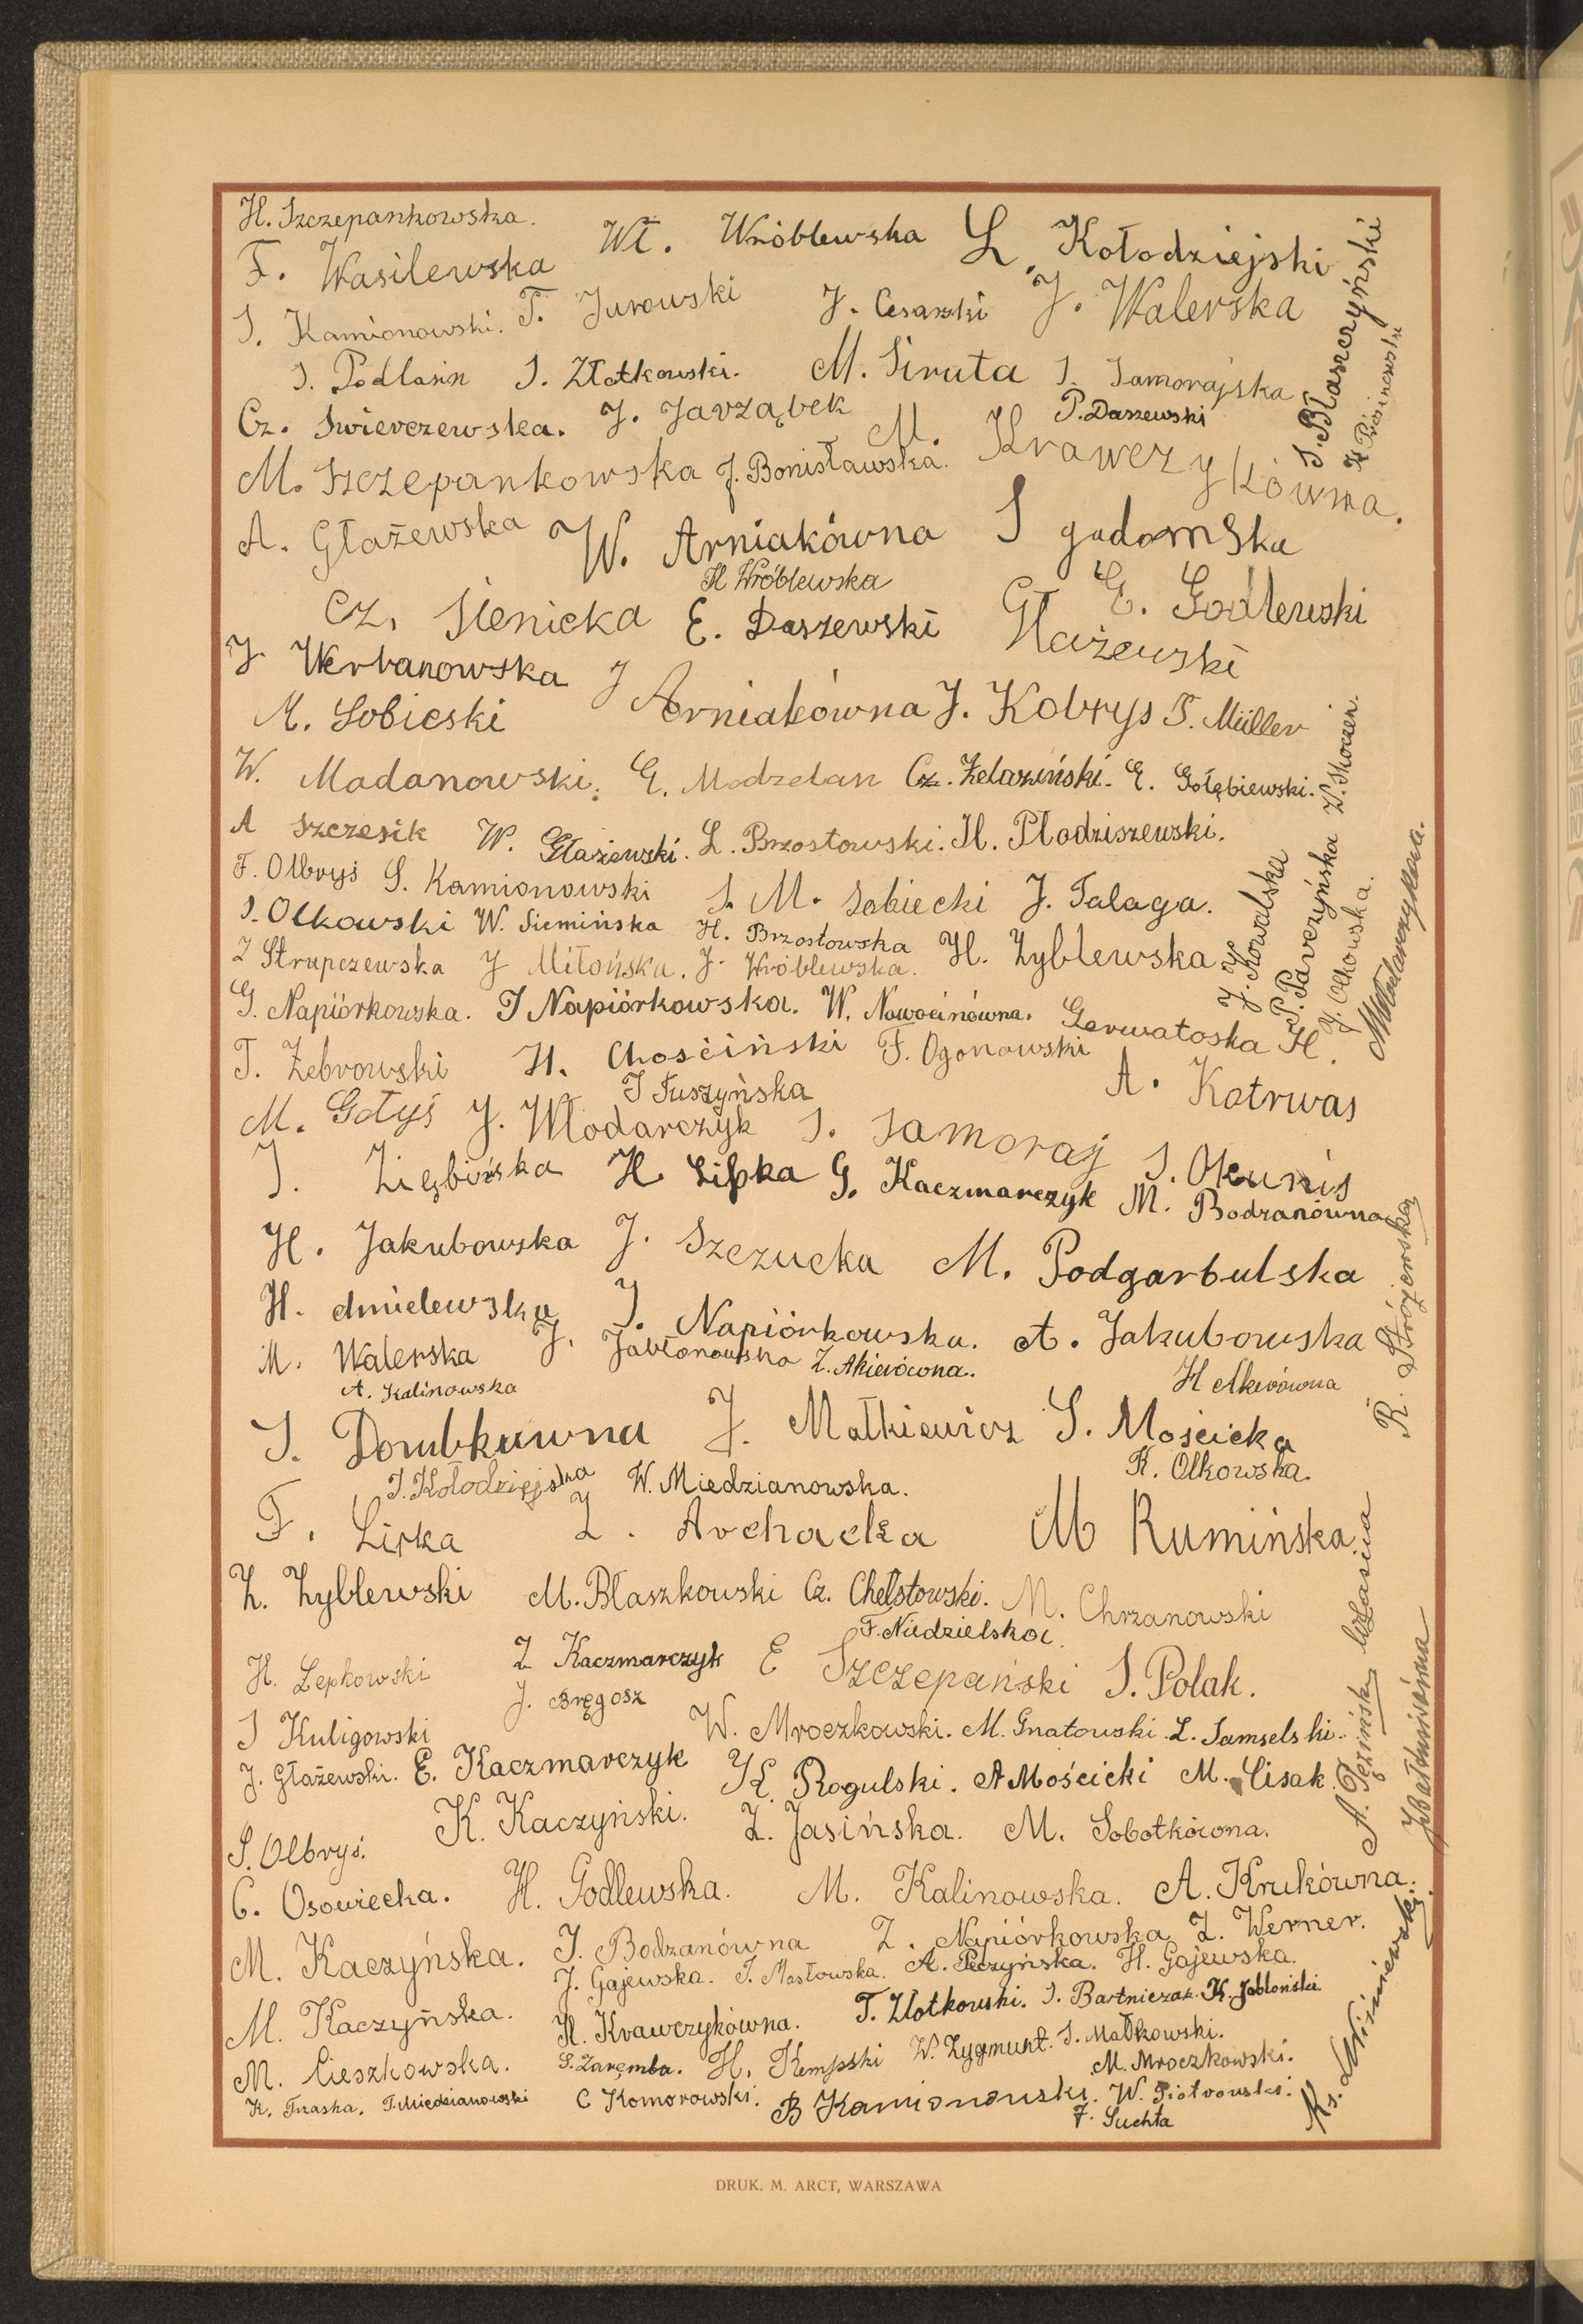 H. Szczepankowska.
F. Wasilewska Wł. Wróblewska L. Kołodziejski
S. Kamionowski. T. Jurowski J. Cesarski J. Walerska
S. Podlasin S. Złotkowski. M. Siruta S. Samorajska
Cz. Swierczewska. J. Jarząbek P. Daszewski
M. Szczepankowska J. Bonisławska. M. Krawczykówna.
S. Błaszczyński
A. Głażewska W. Arniakówna S gadomska
H Wróblewska
Cz. Sienicka E. Daszewski Głażewski E. Godlewski
J. Werbanowska J Arniakówna J. Kobrys S. Müller
M. Sobieski
W. Madanowski. E. Modzelan Cz. Żelaziński. E. Gołębiewski.
A Szczesik W. Głażewski. L. Brzostowski. H. Płodziszewski.
F. Olbryś S. Kamionowski S. M. Sobiecki J. Talaga.
S. Olkowski W. Siemińska H. Brzostowska H. Zyblewska.
Z Strupczewska J Miłońska. J. Wróblewska.
G. Napiórkowska. J Napiórkowska. W. Nowocinówna. Gerwatoska H.
J. Kowalska
P. Parczyńska Z. Skoczeń.
J. Olkowska.
M Włodarczykowa.
T. Żebrowski H. Chościński F. Ogonowski
J Tuszyńska A. Kotrwas
M. Gołyś J. Włodarczyk S. Samoraj S. Okuniś
J. Ziębińska H Lipka G. Kaczmarczyk M. Bodzanówna
H. Jakubowska J. Szczucka M. Podgarbulska
H. chmielewska J. Napiórkowska. A. Jakubowska
M. Walerska J. Jabłonowska Z. Akierówna.
A. Kalinowska H Akierówna
R. Stróżewska
S. Dombkuwna J. Małkiewicz S. Mościcka
J. Kołodziejska W. Miedzianowska. K. Olkowska.
F. Lipka Z. Archacka M Rumińska
Z. Zyblewski M. Błaszkowski Cz. Chełstowski. M. Chrzanowski
F. Niedzielska
H. Lepkowski Z Kaczmarczyk E Szczepański S. Polak.
J. Bręgosz
S Kuligowski W. Mroczkowski. M. Gnatowski. L. Samselski.
J. Głażewski. E. Kaczmarczyk K. Rogulski. A Mościcki M. Cisak.
S. Olbryś. K. Kaczyński. Z. Jasińska. M. Sobotkówna.
C. Osowiecka. H. Godlewska. M. Kalinowska. A. Krukówna.
M. Kaczyńska. J. Bodzanówna Z. Napiórkowska Z. Werner.
J. Gajewska. T. Masłowska. A. Peczyńska. H. Gajewska.
M. Kaczyńska. H. Krawczykówna. T. Złotkowski. S. Bartniczak. K. Jabłoński
M. Cieszkowska. S. Zaremba. H. Kempski W. Zygmunt. S. Małkowski.
M. Mroczkowski.
K. Traska. T. Miedzianowski C Komorowski. B Kamionowski. W. Piotrowski.
F. Suchta
Ks. Wiśniewski
DRUK. M. ARCT, WARSZAWA